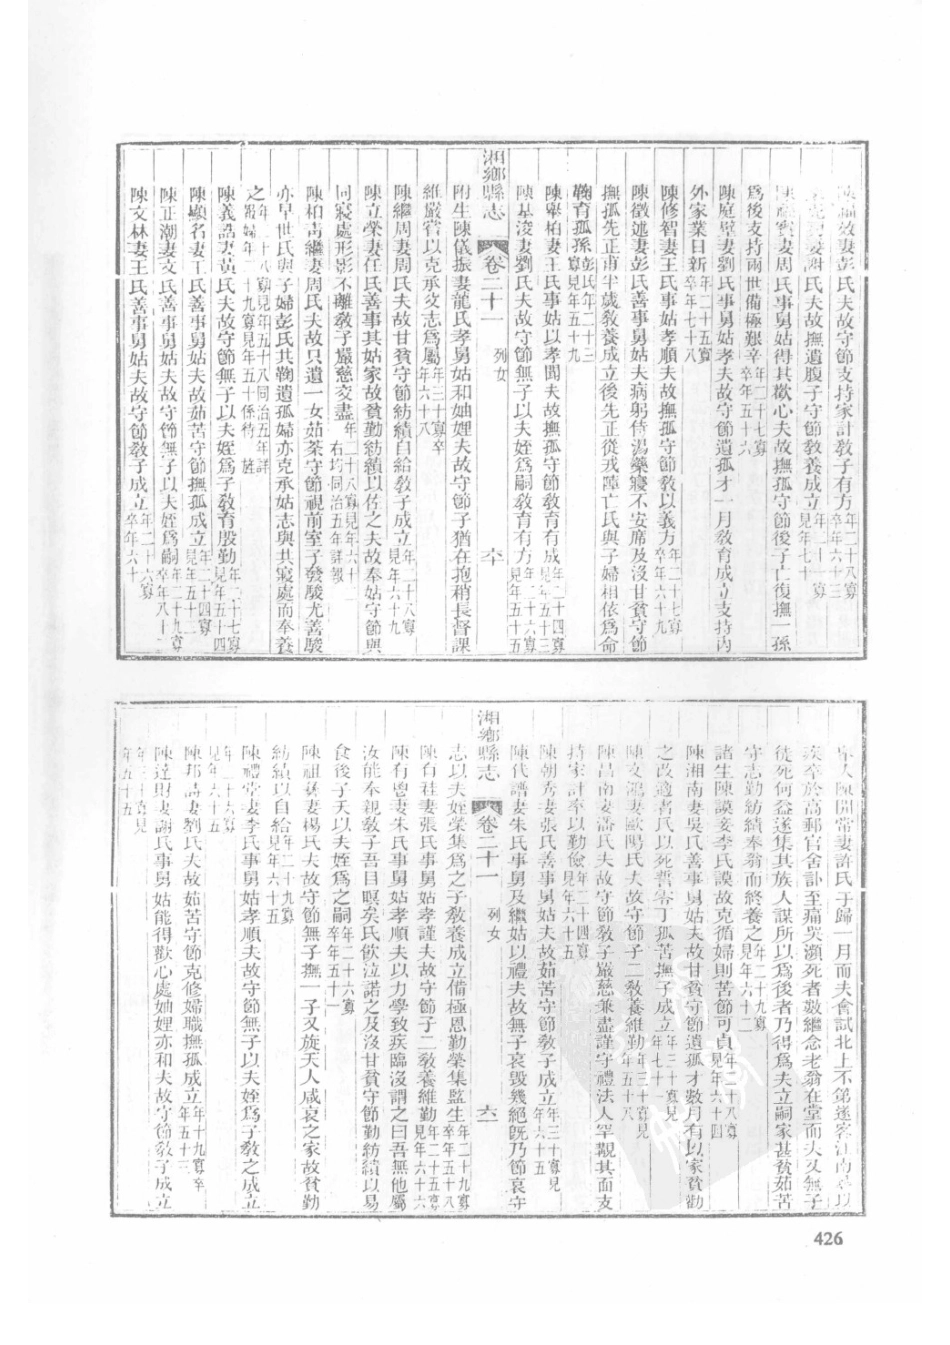 效妻彭氏夫故守節支持家計教子有方年二十八寡卒年六十三
妻謝氏夫故撫遺腹子守節敎養成立年二十一寡見年七十
妻周氏事舅姑得其歡心夫故撫孤守節後子亡復撫一孫
爲後支持兩世備極艱辛年二十七寡卒年五十六
陳庭壁妻劉氏事舅姑孝夫故守節遺孤才一月敎育成立支持內
外家業日新年二十五寡卒年七十八
陳修智妻王氏事姑孝順夫故撫孤守節敎以義方年二十七寡卒年六十九
陳徵述妻彭氏善事舅姑夫病躬侍湯藥寢不安席及沒甘貧守節
撫孤先正甫半歲敎養成立後先正從戎陣亡氏與子婦相依爲命
鞠育孤孫彭氏年二十三寡見年五十九
陳舉柏妻王氏事姑以孝聞夫故撫孤守節敎育有成年二十四寡見年五十三
陳基浚妻劉氏夫故守節無子以夫姪爲嗣敎育有方年二十六寡見年五十五
湘鄉縣志 卷二十一 列女 六十
附生陳儀振妻龍氏孝舅姑和妯娌夫故守節子猶在抱稍長督課
維嚴管以克承父志爲屬年三十寡卒年六十八
陳繼周妻周氏夫故甘貧守節紡績自給敎子成立年二十八寡見年六十九
陳立榮妻任氏善事其姑家故貧勤紡績以佐之夫故奉姑守節與
同寢處形影不離敎子嚴慈交盡年二十八寡見年六十一右均同治五年詳報
陳柏靑繼妻周氏夫故只遺一女茹荼守節視前室子發駿尤善駿
亦早世氏與子婦彭氏共鞠遺孤婦亦克承姑志與共寢處而奉養
之年二十八寡見年五十八同治五年詳報婦年二十九寡見年五十係待旌
陳義誥妻黃氏夫故守節無子以夫姪爲子敎育殷勤年二十七寡見年五十四
陳顯名妻丁氏善事舅姑夫故茹苦守節撫孤成立年二十四寡見年五十二
陳正潮妻文氏善事舅姑夫故守節無子以夫姪爲嗣年二十九寡卒年八十二
陳文林妻王氏善事舅姑夫故守節敎子成立年二十六寡卒年六十
舉人陳開常妻許氏于歸一月而夫會試北上不第遂客江南尋以
疾卒於高郵官舍訃至痛哭瀕死者數繼念老翁在堂而夫又無子
徒死何益遂集其族人謀所以爲後者乃得爲夫立嗣家甚貧茹苦
守志勤紡績奉翁而終養之年二十九寡見年六十二
諸生陳謨妾李氏謨故克循婦則苦節可貞年二十八寡見年六十四
陳湘南妻吳氏善事舅姑夫故甘貧守節遺孤才數月有以家貧勸
之改適者氏以死誓零丁孤苦撫子成立年三十寡見年七十一
陳文鴻妻歐陽氏夫故守節子二敎養維勤年三十寡見年五十八
陳昌南妻潘氏夫故守節敎子嚴慈兼盡謹守禮法人罕覯其面支
持家計奉以勤儉年二十四寡見年六十五
陳朝秀妻張氏善事舅姑夫故茹苦守節敎子成立年三十寡見年六十五
陳代譜妻朱氏事舅及繼姑以禮夫故無子哀毀幾絕旣乃節哀守
湘鄉縣志 卷二十一 列女 六一
志以夫姪榮集爲之子敎養成立備極恩勤榮集監生年二十九寡卒年五十八
陳自桂妻張氏事舅姑孝謹夫故守節子二敎養維勤年二十五寡見年六十六
陳有崽妻朱氏事舅姑孝順夫以力學致疾臨沒謂之曰吾無他屬
汝能奉親敎子吾目瞑矣氏飲泣諾之及沒甘貧守節勤紡績以易
食後子夭以夫姪爲之嗣年二十六寡卒年五十一
陳祖彝妻楊氏夫故守節無子撫一子又旋夭人咸哀之家故貧勤
紡績以自給年二十九寡見年六十五
陳禮堂妻李氏事舅姑孝順夫故守節無子以夫姪爲子敎之成立
年二十六寡見年六十五
陳邦語妻劉氏夫故茹苦守節克修婦職撫孤成立年十九寡卒年五十三
陳逹財妻謝氏事舅姑能得歡心處妯娌亦和夫故守節敎子成立
年三十寡見年五十五
426